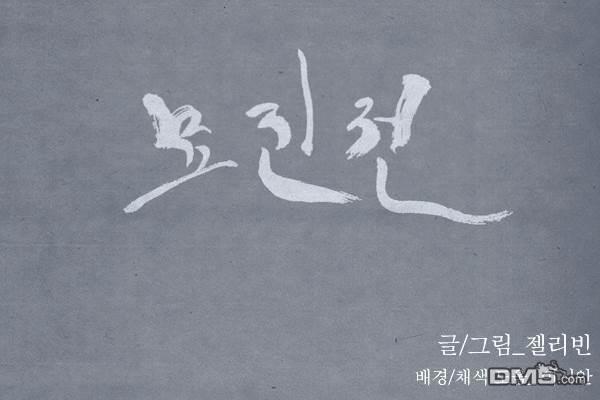 묘진전
글/그림_젤리빈
배경/채색
DM5